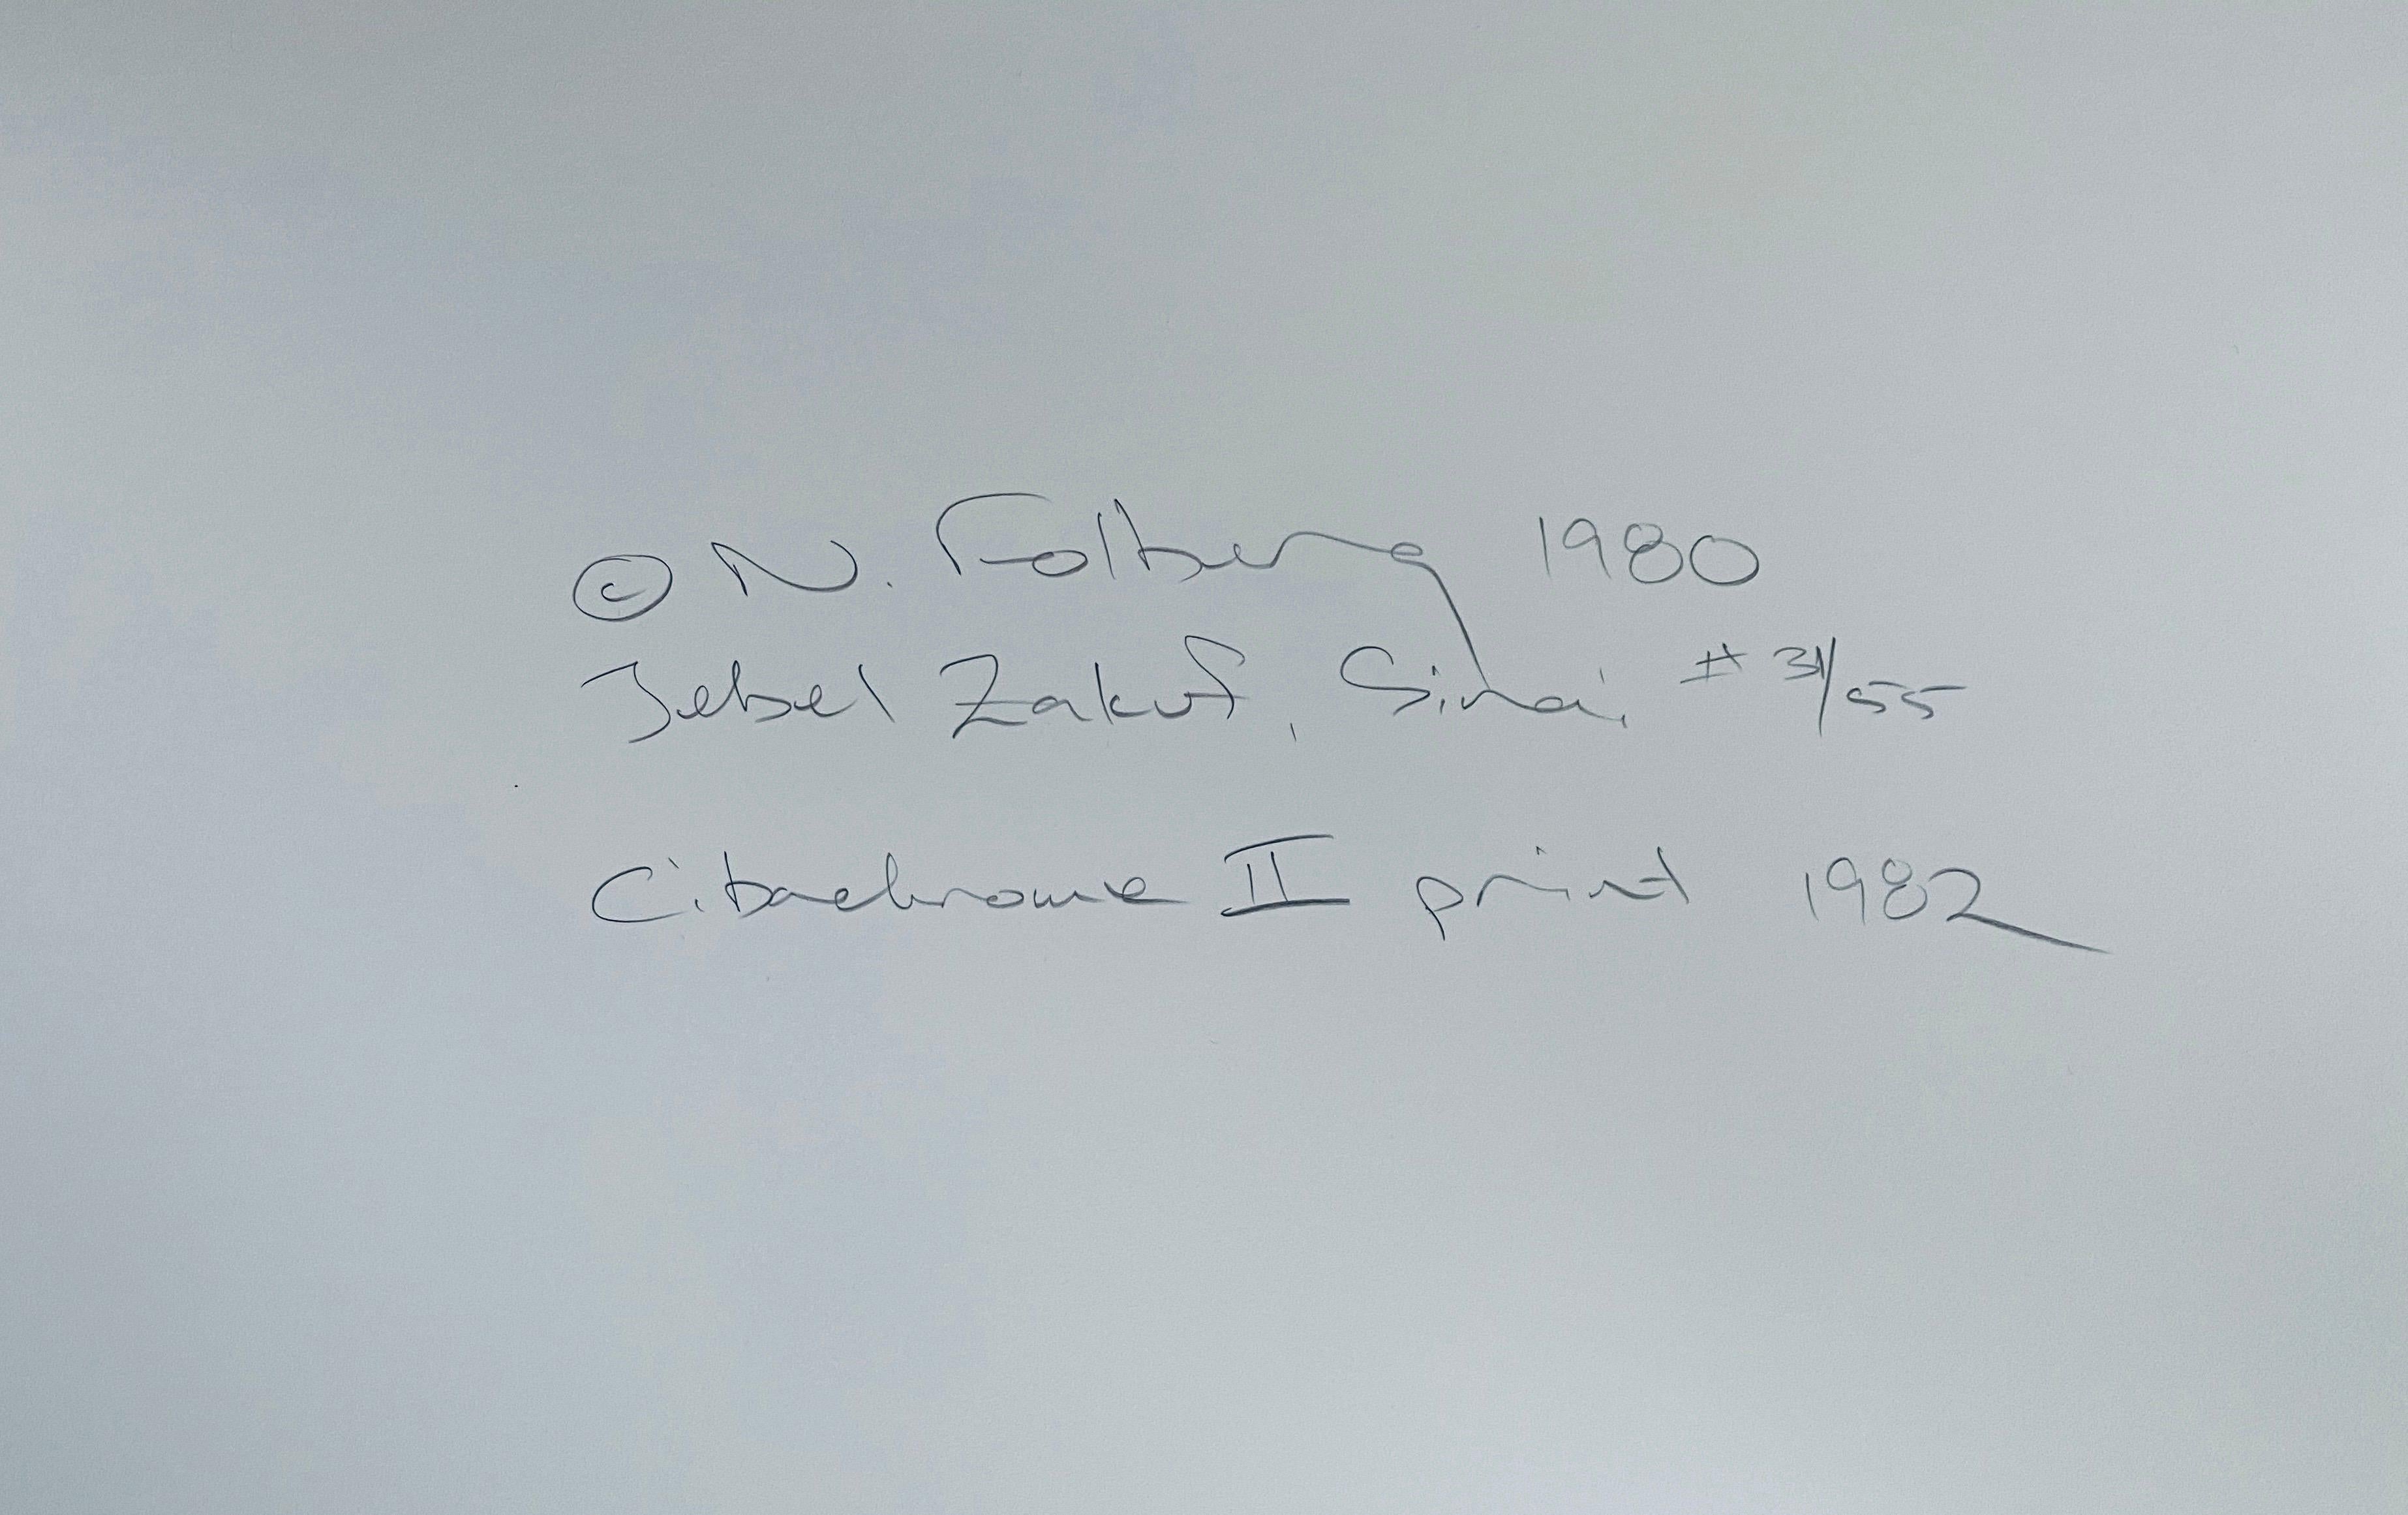 © N. Folberg 1980
Jebel Zakuf, Sinai # 31/55
Cibachrome II print 1982